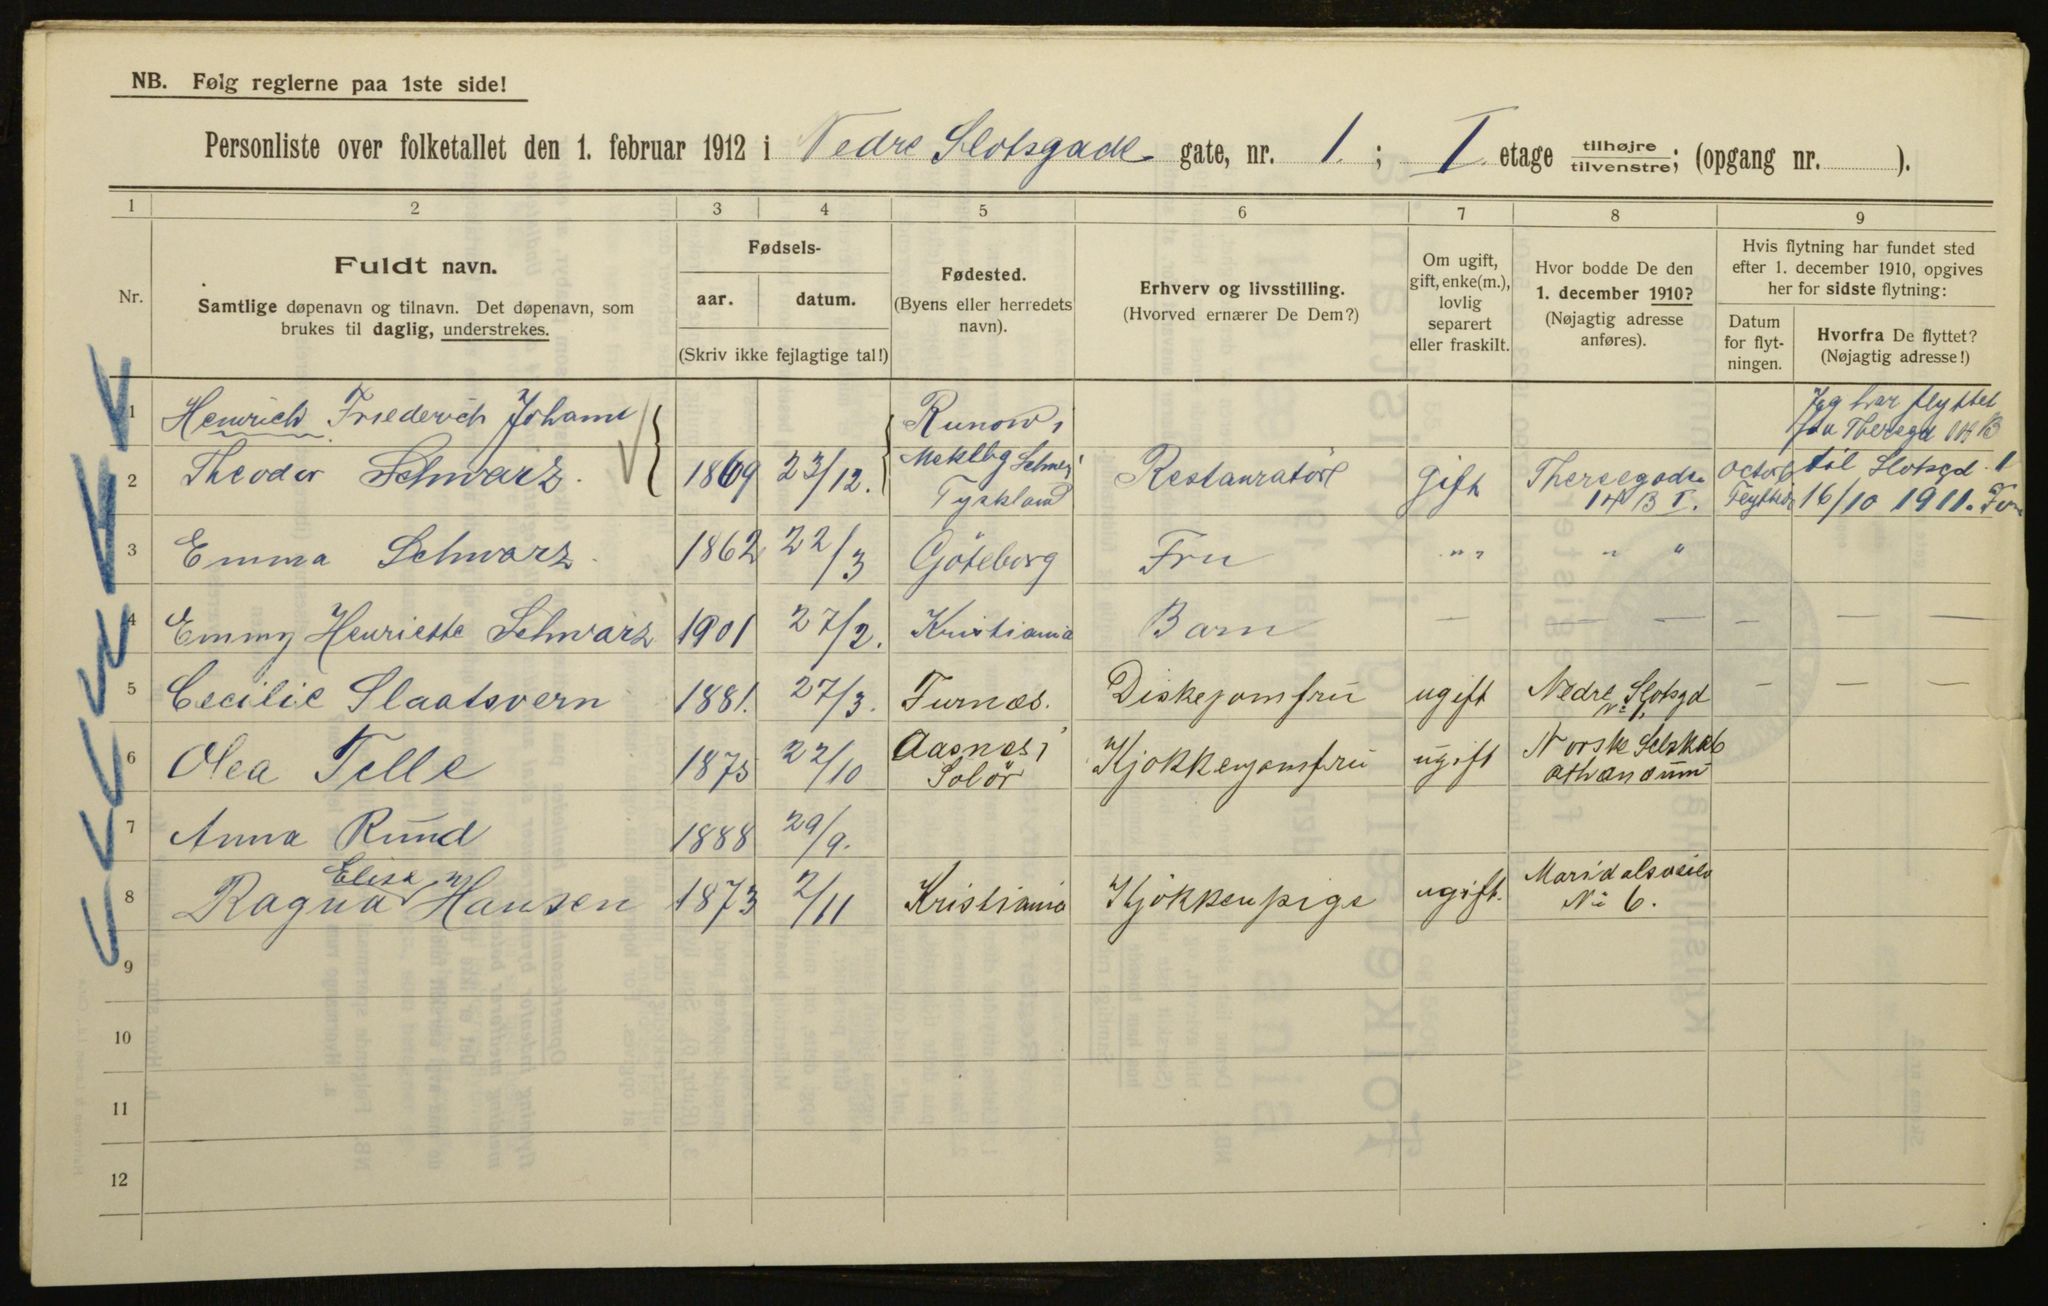 NB. Følg reglerne paa 1ste side!
Personliste over folketallet den 1. februar 1912 i Nedre Slotsgade gate, nr. 1. ; I. etage tilhøjre / tilvenstre; (opgang nr. ).
1 2 3 4 5 6 7 8 9
Nr.
Fuldt navn.
Samtlige døpenavn og tilnavn. Det døpenavn, som
brukes til daglig, understrekes.
Fødsels-
aar. datum.
(Skriv ikke fejlagtige tal!)
Fødested.
(Byens eller herredets
navn).
Erhverv og livsstilling.
(Hvorved ernærer De Dem?)
Om ugift,
gift, enke(m.),
lovlig
separert
eller fraskilt.
Hvor bodde De den
1. december 1910?
(Nøjagtig adresse
anføres).
Hvis flytning har fundet sted
efter 1. december 1910, opgives
her for sidste flytning:
Datum
for flyt-
ningen.
Hvorfra De flyttet?
(Nøjagtig adresse!)
1 Henrich Friederich Johann Runow, Jeg har flyttet
fra Theresgd 14 B
2 Theodor Schwarz. 1869 23/12. Meklbg Schwer Tyskland Restauratör Gift Theresegade 14 B I. Flyttede til Slotsgd 1
16/10 1911.
3 Emma Schwarz. 1862 22/3 Göteborg Fru " " " "
4 Emmy Henriette Schwarz 1901 27/2. Kristiania Barn — — — — — —
5 Cecilie Slaatsvern 1881. 27/3. Furnæs. Diskejomfru ugift Nedre Slotsgd № 1. — — —
6 Olea Telle 1875 22/10 Aasnes i Solör Kjökkenjomfru ugift Norske Selskab Athænæum
7 Anna Rund 1888 29/9.
8 Ragna Elise Hansen 1873 2/11 Kristiania Kjökkenpige ugift. Maridalsveien No 6.
9
10
11
12